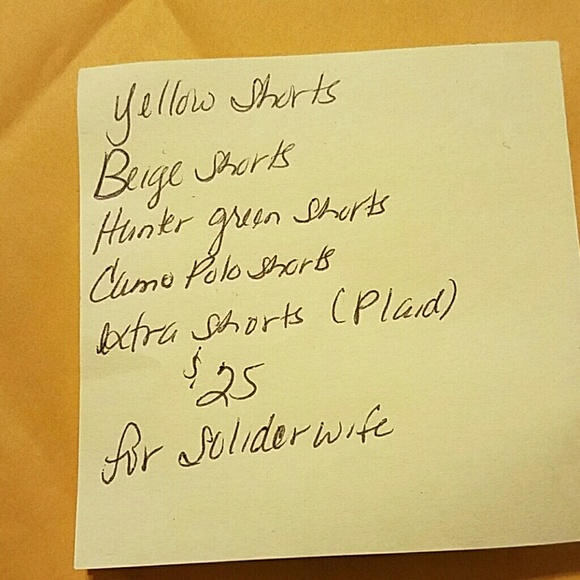 Yellow Shorts
Beige Shorts
Hunter green Shorts
Camo Polo shorts
extra shorts (Plaid)
$25
for Soliderwife